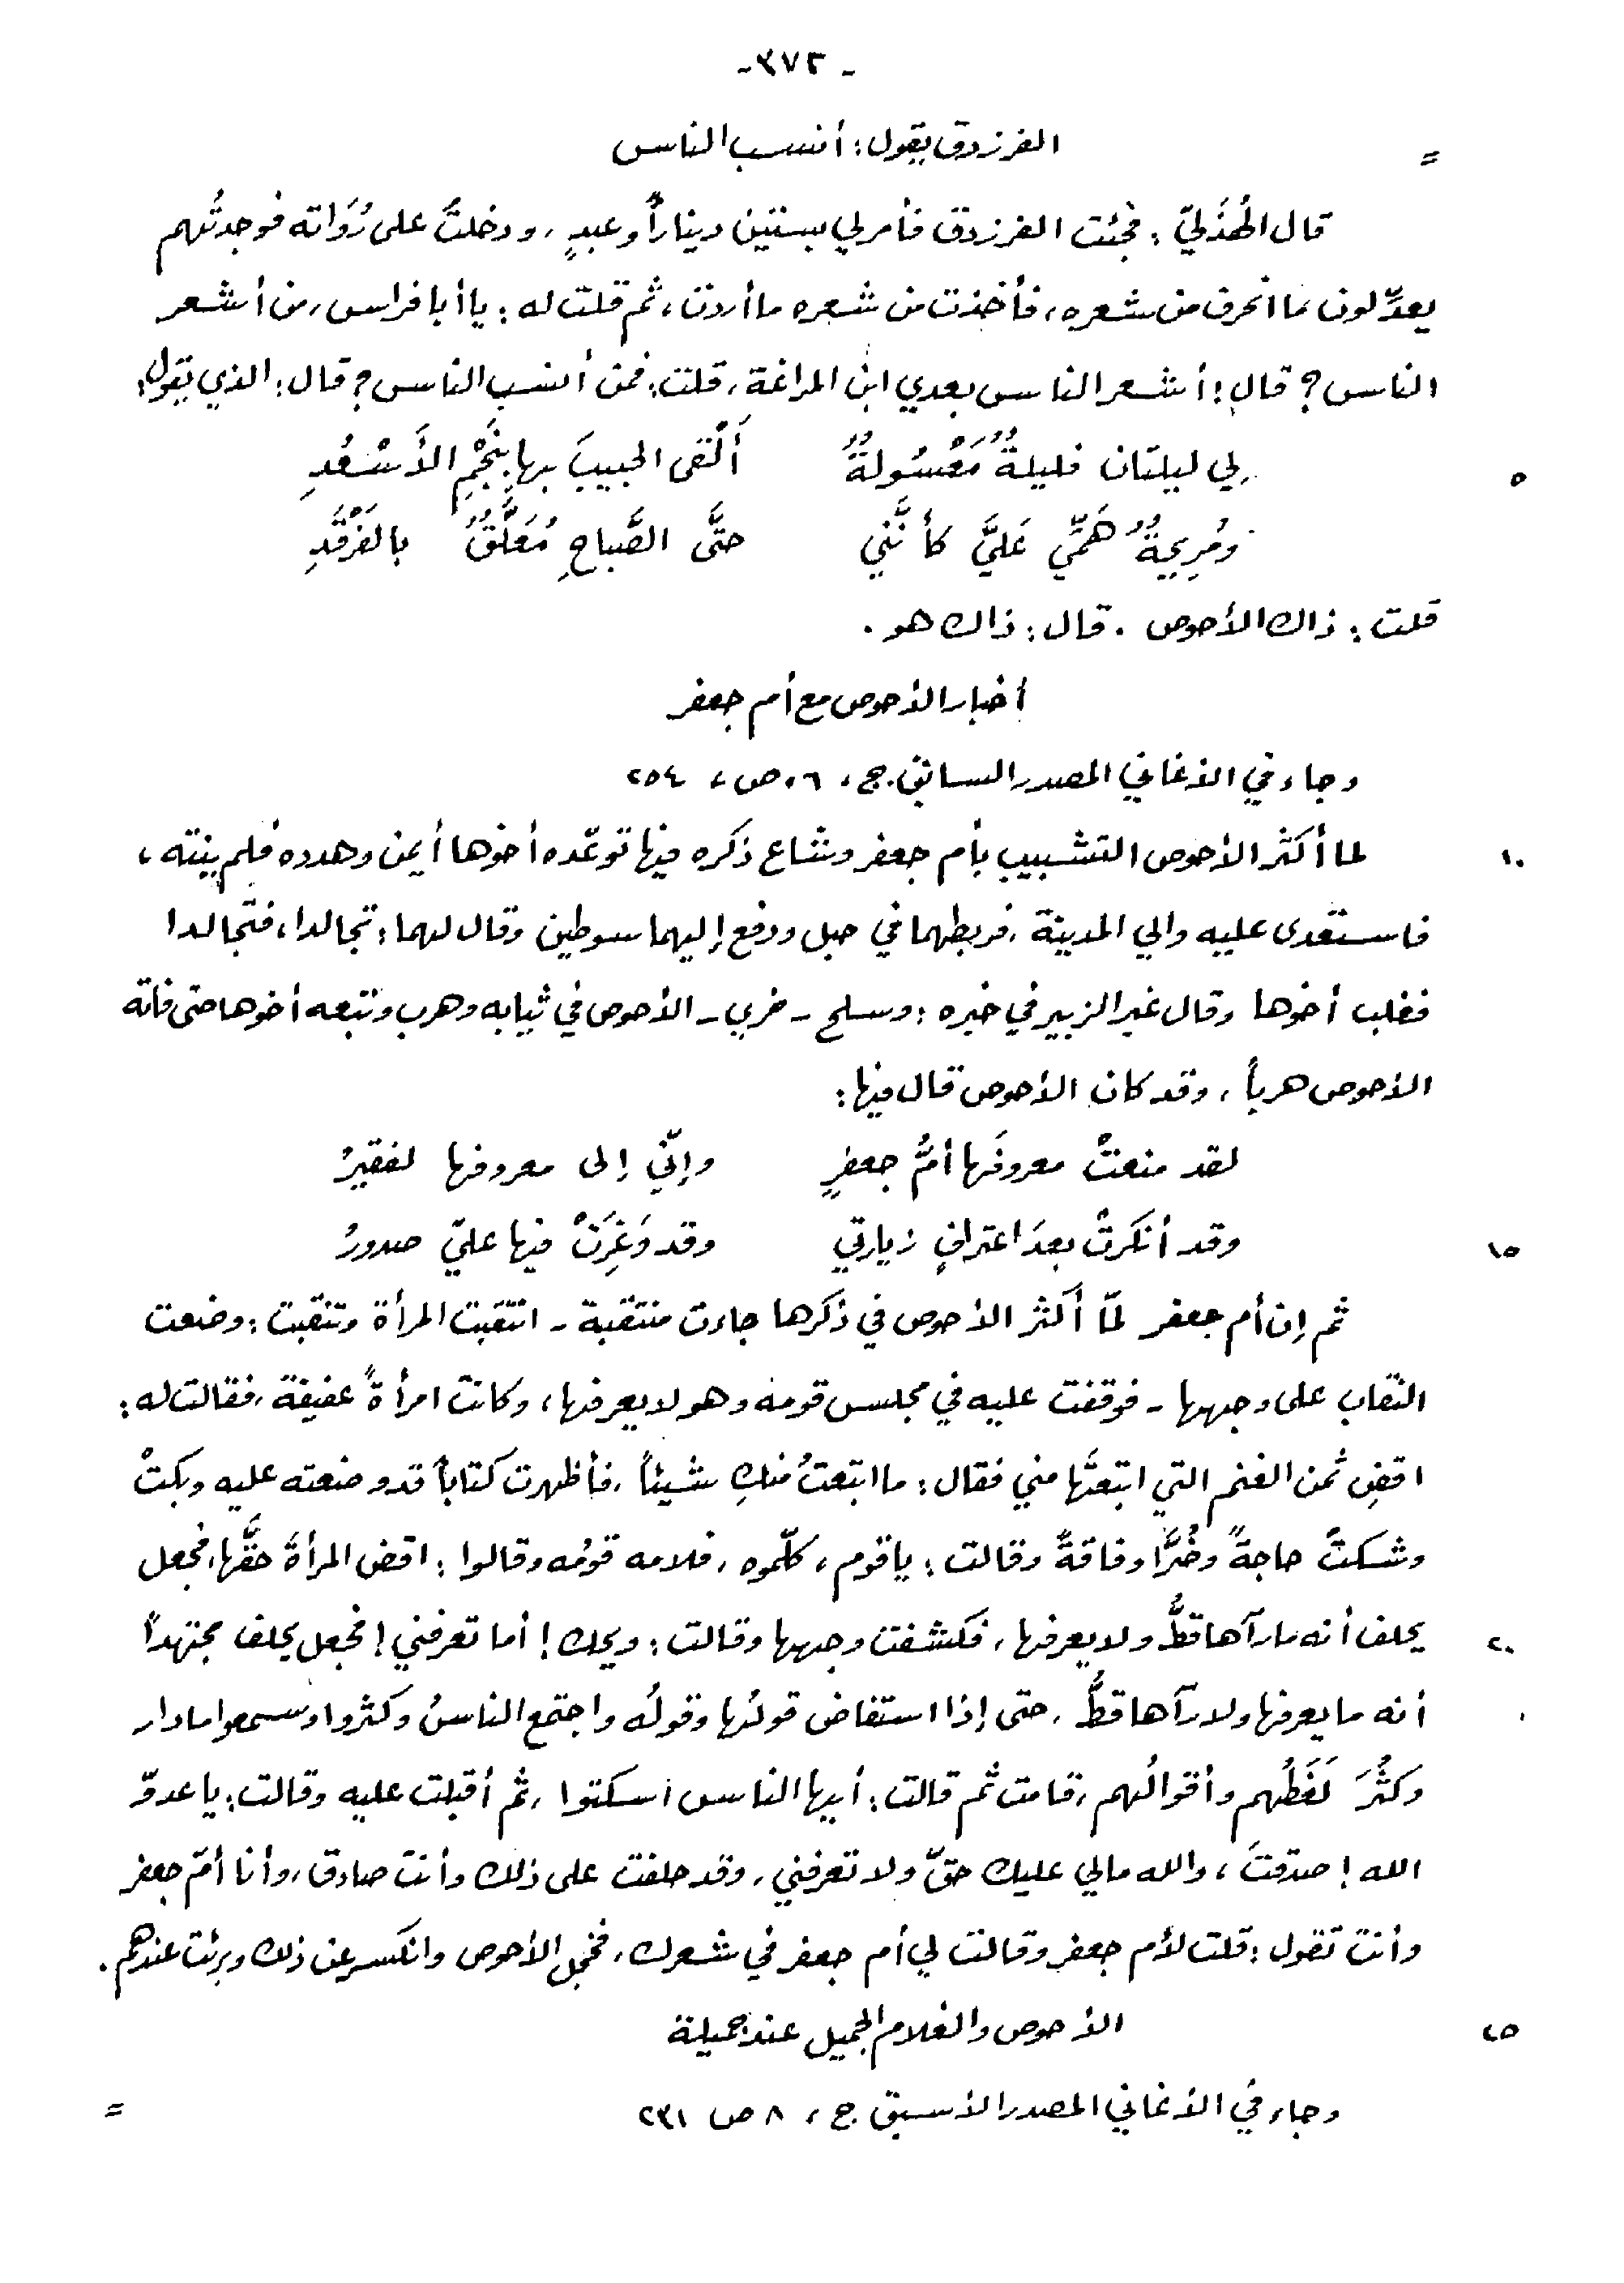 - ٣٧٢ -
= الفرزدق يقول : أنسب الناس
قال الهُذَليّ : فجئت الفرزدق فأمر لي بستين ديناراً وعبدٍ ، ودخلتُ على رُوَاته فوجدتُهم
يعدِّلون ما انحرف من شعره ، فأخذت من شعره ما أردت ، ثم قلت له : يا أبا فراس ، من أشعر
الناس ؟ قال : أشعر الناس بعدي ابن المراغة ، قلت : فمن أنسب الناس ؟ قال : الذي يقول :
٥ لي ليلتان فليلةٌ مَعْسُولةٌ أَلْقى الحبيبَ بها بِنَجْمِ الأَسْعُدِ
ومُرِيحةٌ هَمِّي عَليَّ كأنَّني حتَّى الصَّباحِ مُعَلَّقٌ بالفَرْقَدِ
قلت : ذاك الأحوص . قال : ذاك هو .
أخبار الأحوص مع أم جعفر
وجاء في الأغاني المصدر السابق . ج ، ٦ ، ص ، ٢٥٤
١٠ لما أكثر الأحوص التشبيب بأم جعفر وشاع ذكره فيها توعّده أخوها أيمن وهدده فلم ينته ،
فاستعدى عليه والي المدينة ، فربطهما في حبل ودفع إليهما سوطين وقال لهما : تجالدا ، فتجالدا
فغلب أخوها وقال غير الزبير في خبره : وسلح - خري - الأحوص في ثيابه وهرب وتبعه أخوها حتى فاته
الأحوص هرباً ، وقد كان الأحوص قال فيها :
لقد منعتْ معروفَها أمُّ جعفرٍ وإنّي إلى معروفها لفقيرُ
١٥ وقد أنكرتْ بعدَ اعترافٍ زيارتي وقد وَغِرَتْ فيها عليّ صدورُ
ثم إن أم جعفر لمّا أكثر الأحوص في ذكرها جاءت منتقبة - انتقبت المرأة وتنقبت : وضعت
النقاب على وجهها - فوقفت عليه في مجلس قومه وهو لا يعرفها ، وكانت امرأةً عفيفة ، فقالت له :
اقضِ ثمن الغنم التي ابتعتَها مني فقال : ما ابتعتُ منكِ شيئاً ، فأظهرت كتاباً قد وضعته عليه وبكتْ
وشكتْ حاجةً وضُرًّا وفاقةً وقالت : يا قوم ، كلّموه ، فلامه قومُه وقالوا : اقض المرأةَ حقَّها ، فجعل
٢٠ يحلف أنه ما رآها قطُّ ولا يعرفها ، فكشفت وجهها وقالت : ويحك ! أما تعرفني ! فجعل يحلف مجتهداً
أنه ما يعرفها ولا رآها قطُّ ، حتى إذا استفاض قولُها وقولُه واجتمع الناسُ وكثروا وسمعوا ما دار
وكثُرَ لَغَطُهم وأقوالُهم ، قامت ثم قالت : أيها الناس اسكتوا ، ثم أقبلت عليه وقالت : يا عدوّ
الله ! صدقتَ ، والله مالي عليك حقّ ولا تعرفني ، وقد حلفت على ذلك وأنت صادق ، وأنا أمّ جعفر
وأنتَ تقول : قلت لأم جعفر وقالت لي أم جعفر في شعرك ، فخجل الأحوص وانكسر عن ذلك وبرئت عندهم .
٢٥ الأحوص والغلام الجميل عند جميلة
وجاء في الأغاني المصدر الأسبق ج ، ٨ ص ٢٣١ =